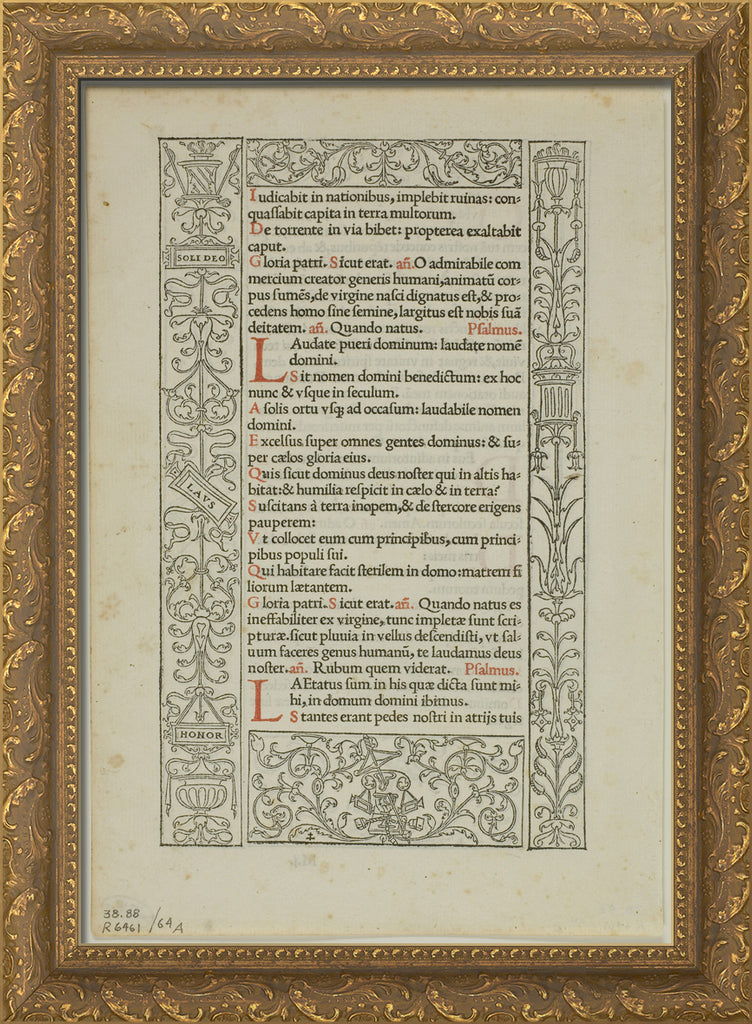 SOLI DEO
LAVS
HONOR
Iudicabit in nationibus, implebit ruinas: con-
quaſſabit capita in terra multorum.
De torrente in via bibet: propterea exaltabit
caput.
Gloria patri. Sicut erat. añ. O admirabile com
mercium creator generis humani, animatū cor-
pus sumēs, de virgine naſci dignatus eſt, & pro-
cedens homo ſine ſemine, largitus eſt nobis ſuā
deitatem. añ. Quando natus. Pſalmus.
LAudate pueri dominum: laudate nomē
domini.
Sit nomen domini benedictum: ex hoc
nunc & vſque in ſeculum.
A ſolis ortu vſq; ad occaſum: laudabile nomen
domini.
Excelſus ſuper omnes gentes dominus: & ſu-
per cælos gloria eius.
Quis ſicut dominus deus noſter qui in altis ha-
bitat: & humilia reſpicit in cælo & in terra?
Suſcitans à terra inopem, & de ſtercore erigens
pauperem:
Vt collocet eum cum principibus, cum princi-
pibus populi ſui.
Qui habitare facit ſterilem in domo: matrem fi
liorum lætantem.
Gloria patri. Sicut erat. añ. Quando natus es
ineffabiliter ex virgine, tunc impletæ ſunt ſcri-
pturæ. ſicut pluuia in vellus deſcendiſti, vt ſal-
uum faceres genus humanū, te laudamus deus
noſter. añ. Rubum quem viderat. Pſalmus.
LAEtatus ſum in his quæ dicta ſunt mi-
hi, in domum domini ibimus.
Stantes erant pedes noſtri in atrijs tuis
38.88
R6461 /64A